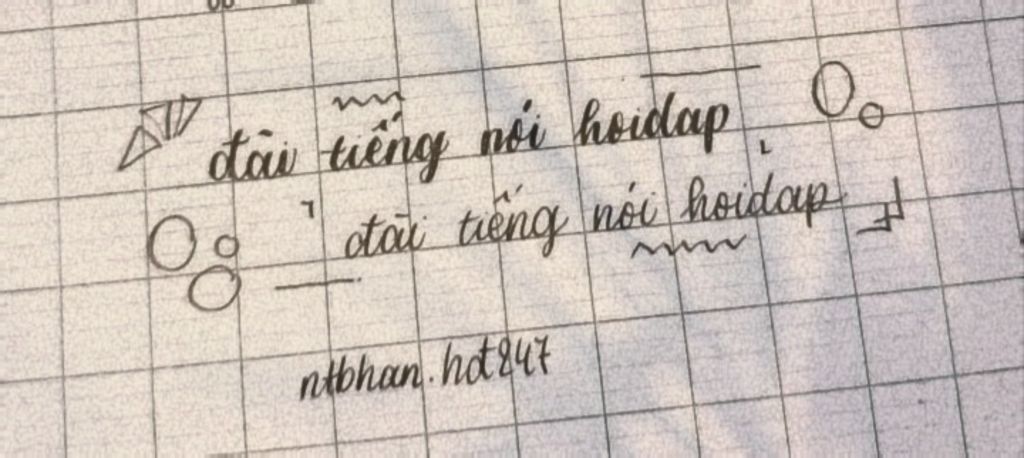 đài tiếng nói hoidap
đài tiếng nói hoidap
ntbhan.hdt247